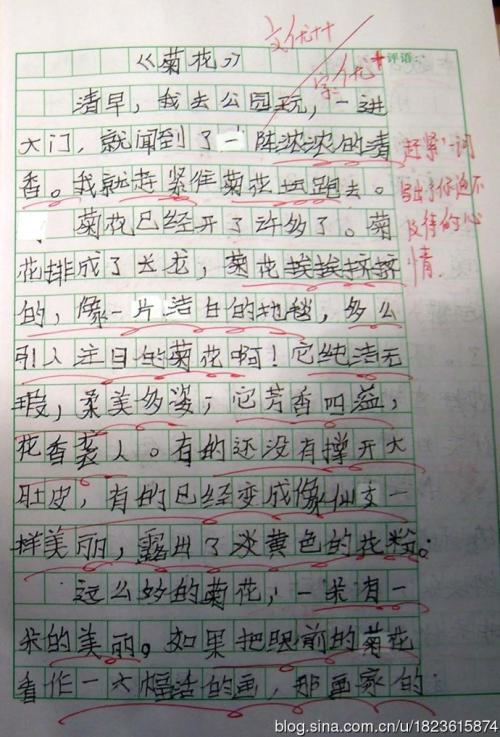 文优++
字优+
评语:
《菊花》
清早，我去公园玩，一进
大门，就闻到了一阵浓浓的清
香。我就赶紧往菊花地跑去。
赶紧一词
写出了你迫不
及待的心
情.
菊花已经开了许多了。菊
花排成了长龙，菊花挨挨挤挤
的，像一片洁白的地毯，多么
引人注目的菊花啊！它纯洁无
瑕，柔美多姿；它芳香四溢，
花香袭人。有的还没有撑开大
肚皮，有的已经变成像仙女一
样美丽，露出了淡黄色的花粉。
这么好的菊花，一朵有一
朵的美丽。如果把眼前的菊花
看作一大幅活的画，那画家的
blog.sina.com.cn/u/1823615874